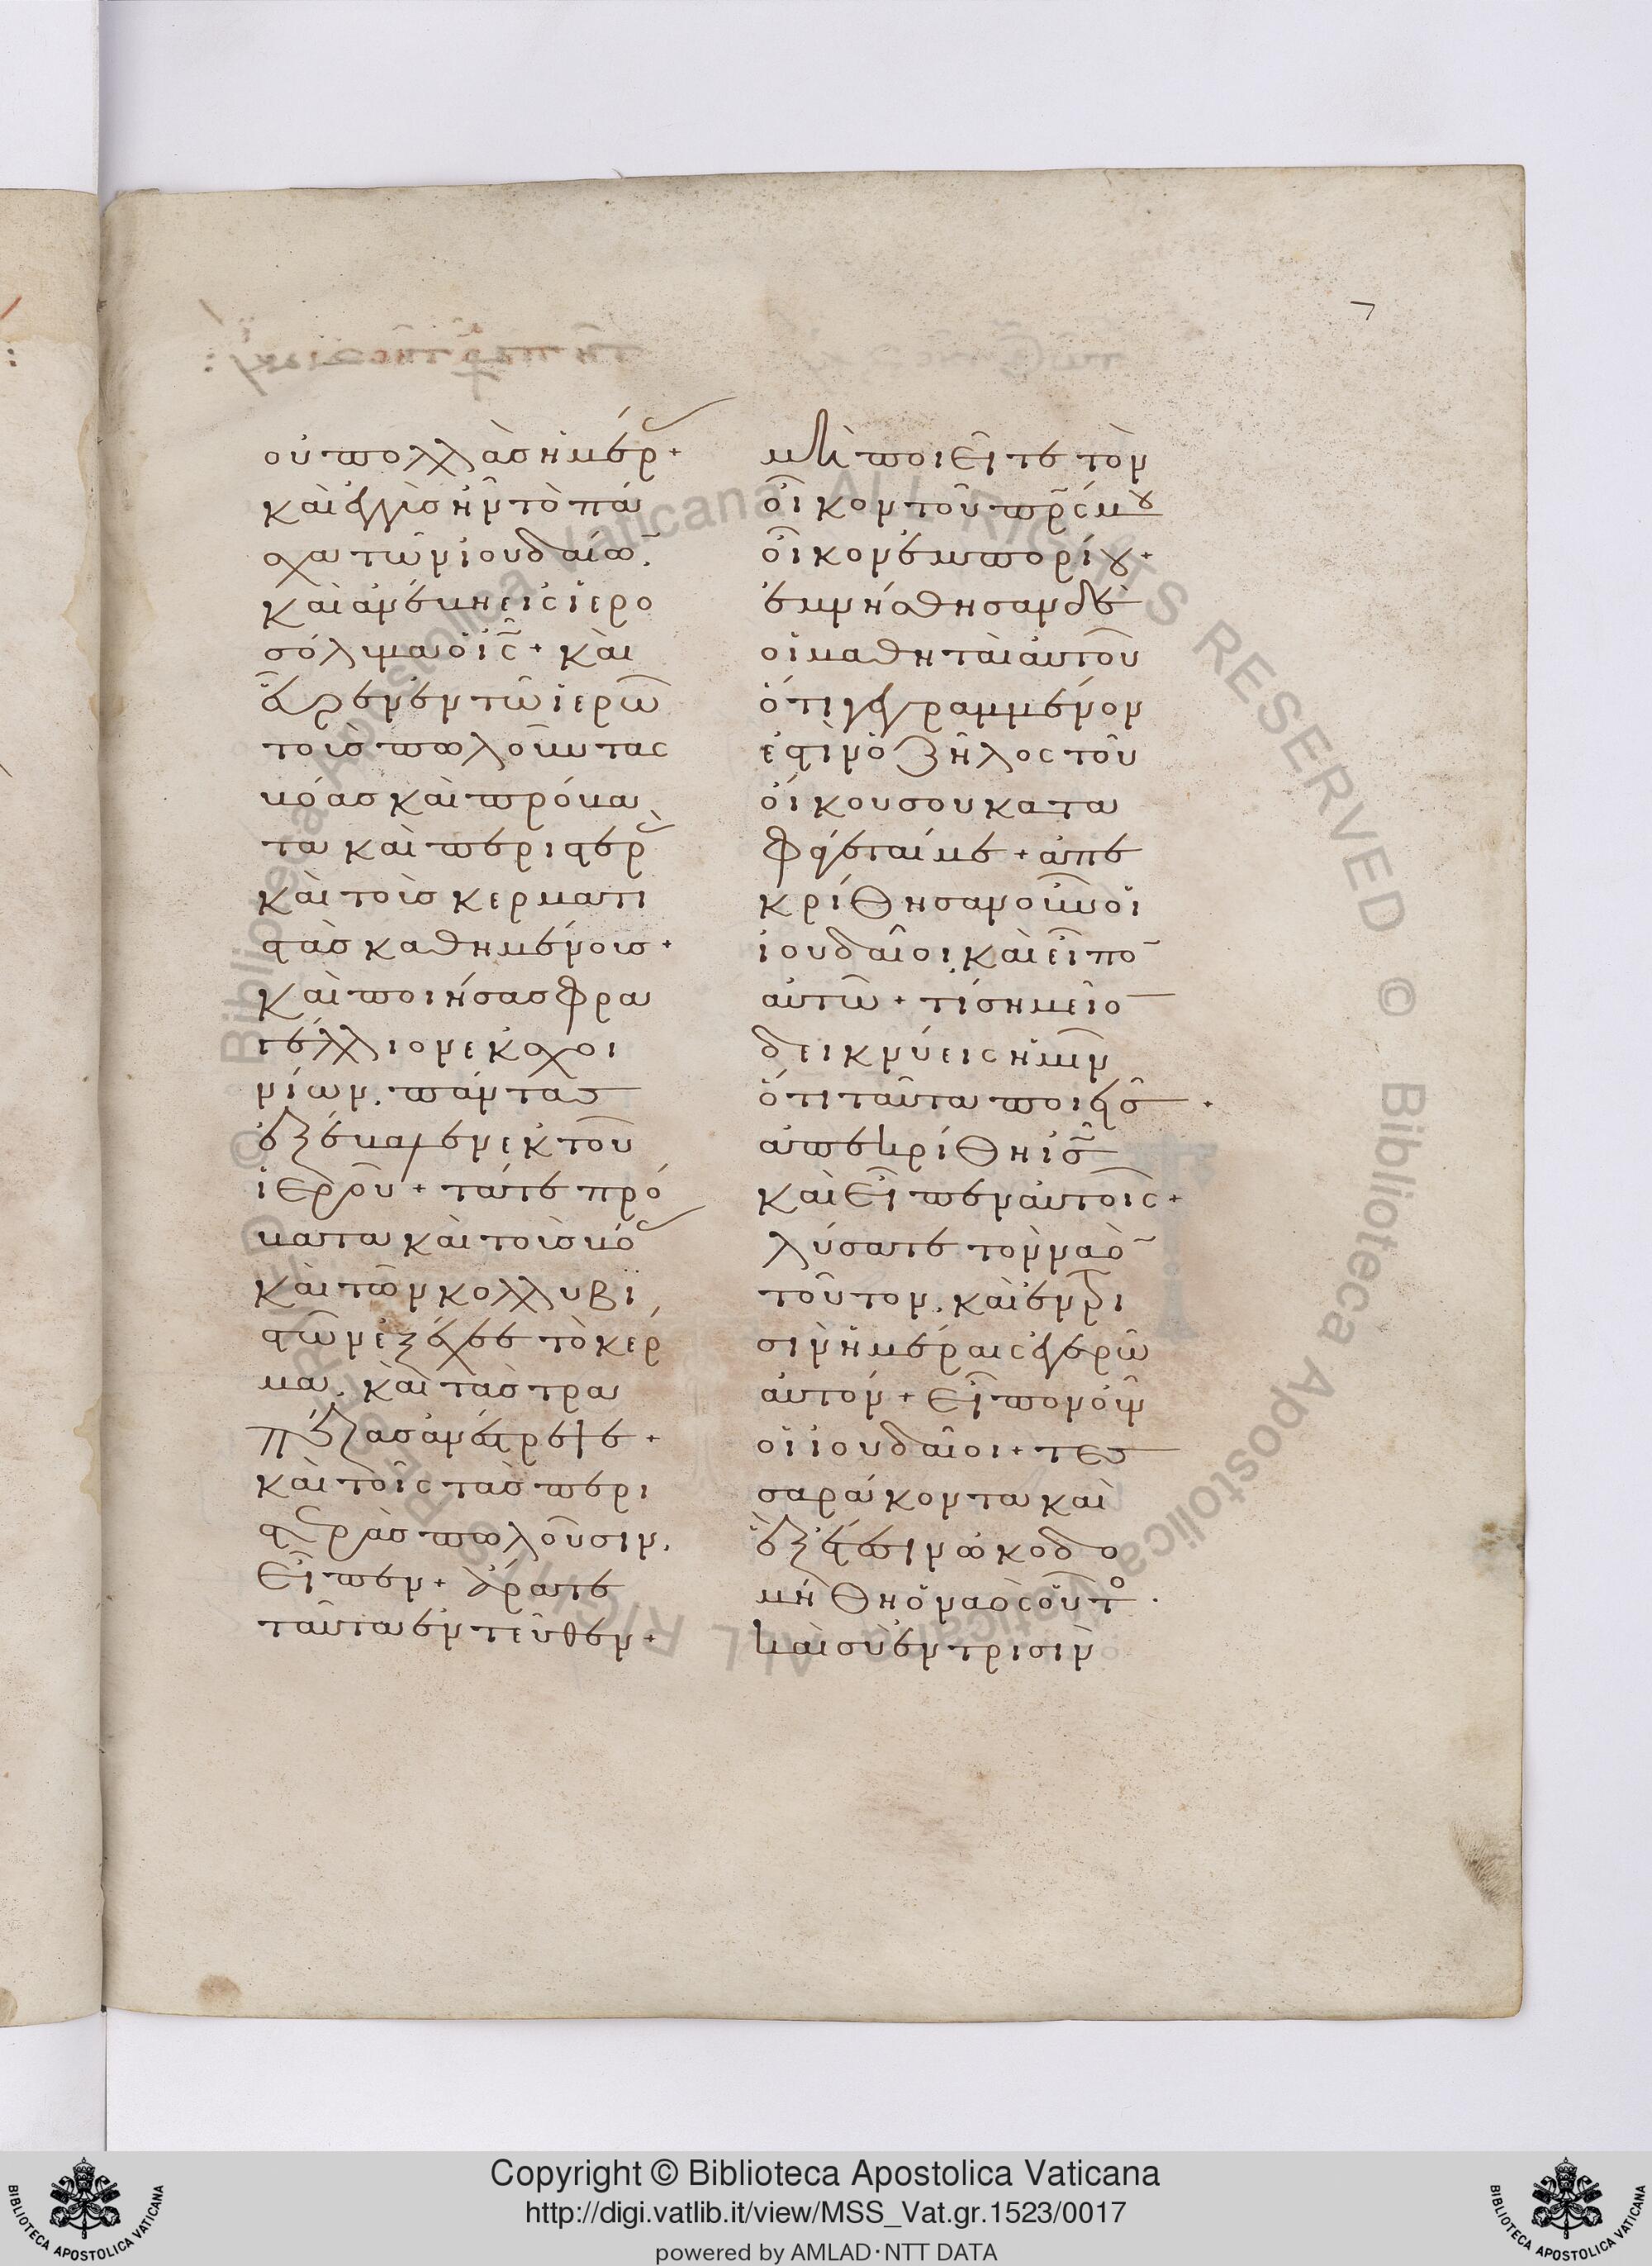 7
οὐ πολλὰσ ἡμέρ +
καὶ ἐγγὺσ ἦν τὸ πά
σχα τῶν ἰουδαίω̄.
καὶ ἀνέβη εἰς ἱερο
σόλυμα ὁ ἰ̅ς̅ + καὶ
εὗρεν ἐν τῶ ἱερῶ
τοὺσ πωλοῦντας
βόασ καὶ πρόβα
τα καὶ περιστερ
καὶ τοὺσ κερματι
στὰσ καθημένουσ +
καὶ ποιήσασ φρα
γέλλιον ἐκ σχοι
νίων. πάντασ
ἐξέβαλεν ἐκ τοῦ
ἱεροῦ + τάτε πρό
βατα καὶ τοὺσ βό
καὶ τῶν κολλυβι
στῶν ἐξέχεε τὸ κέρ
μα. καὶ τὰσ τρα
πέζασ ἀνέστρεψε +
καὶ τοῖς τὰσ περι
στερὰσ πωλοῦσιν.
εἶπεν + ἄρατε
ταῦτα ἐντεῦθεν +
μὴ ποιεῖτε τὸν
οἶκον τοῦ π̅ρ̅ς̅ μου
οἶκον ἐμπορίου +
ἐμνήσθησαν δὲ
οἱ μαθηταὶ αὐτοῦ
ὅτι γεγραμμένον
ἐστὶν ὁ ζῆλος τοῦ
οἴκου σου κατα
φάγεταί με + ἀπε
κρίθησαν οὖν οἱ
ἰουδαῖοι καὶ εἶπο̄
αὐτῶ + τί σημεῖο̄
δεικνύεις ἡμῖν
ὅτι ταῦτα ποιεῖσ +
ἀπεκρίθη ἰ̅σ̅
καὶ εἶπεν αὐτοῖς +
λύσατε τὸν ναὸ̄
τοῦτον. καὶ ἐν τρι
σὶν ἡμέραις ἐγερῶ
αὐτόν + εἶπον οὖν
οἱ ἰουδαῖοι + τεσ
σαράκοντα καὶ
ἓξ ἔτεσιν ὠκοδο
μήθη ὁ ναὸς οὗτο.
καὶ σὺ ἐν τρισὶν
Copyright © Biblioteca Apostolica Vaticana
http://digi.vatlib.it/view/MSS_Vat.gr.1523/0017
powered by AMLAD·NTT DATA
BIBLIOTECA APOSTOLICA VATICANA
BIBLIOTECA APOSTOLICA VATICANA
© Biblioteca Apostolica Vaticana ALL RIGHTS RESERVED © Biblioteca Apostolica Vaticana ALL RIGHTS RESERVED